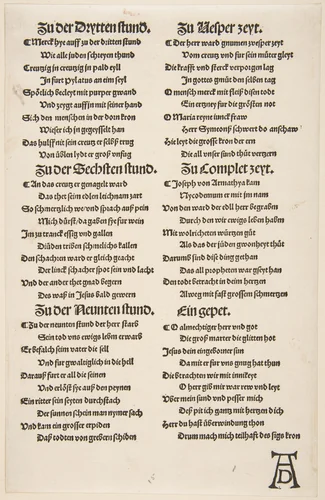 Zu der Drytten stund.
Merck hye auff zu der dritten stund
Wie all Juden schryen thund
Creutzig in creutzig in pald eyll
In furt Pylatus an eim seyl
Spötlich becleyt mit purper gwand
Vnd zeygt auff jn mit seiner hand
Sich den menschen in der dorn kron
Wieser ich jn gegeysselt han
Das hulff nit sein creutz er selbst trug
Von üblen lydt er groß vnfug
Zu der Sechsten stund.
An das creutz er genagelt ward
Das thet seim edlen leichnam zart
So schmertzlich we vnd sprach auß pein
Mich dürst da gaben sye für wein
Im zu tranck essig vnd gallen
Die Juden triben schmelichs kallen
Den schachern ward er gleich geacht
Der linck schacher spot sein vnd lacht
Vnd der ander thet gnad begern
Des waß in Jesus bald gewern
Zu der Neunten stund.
Zu der neunten stund der herr starb
Sein tod vns ewigs leben erwarb
Er befalch seim vater die sell
Vnd fur gwaltiglich in die hell
Darauß furt er all die seinen
Vnd erlöst sye auß den peynen
Ein ritter sein seyten durchstach
Der sunnen schein man nymer sach
Vnd kam ein grosser erpiden
Daß todten von grebern schiden
Zu Vesper zeyt.
Der herr ward gnumen zvesper zeyt
Vom creutz vnd fur sein müter gleyt
Die krafft vnd sterck verporgen lag
In gottes müt den selben tag
O mensch merck mit fleiß disen todt
Ein ertzney fur die grösten not
O Maria reyne iunckfraw
Herr Symeons schwert do anschaw
Hie leyt die grosse kron der ern
Die all vnser sund thüt verzern
Zu Complet zeyt.
Joseph von Armathya kam
Nycodemum er mit jm nam
Von den ward der edl herr begraben
Durch den wir ewigs leben haben
Mit wolrichetn würtzen güt
Als das der Juden gwonheyt thüt
Darumb sind dise ding gethan
Das all propheten war gseyt han
Den todt betracht in deim hertzen
Alweg mit fast grossem schmertzen
Ein gepet.
O almechtiger herr vnd got
Die groß marter die glitten hot
Jesus dein eingeborner sun
Da mit er fur vns gnug hat thun
Die btrachten wir mit innikeyt
O herr gib mir war rew vnd leyt
Vber mein sund vnd pesser mich
Deß pit ich gantz mit hertzen dich
Herr du hast überwindung thon
Drum mach mich teilhaft des sigs kron
AD